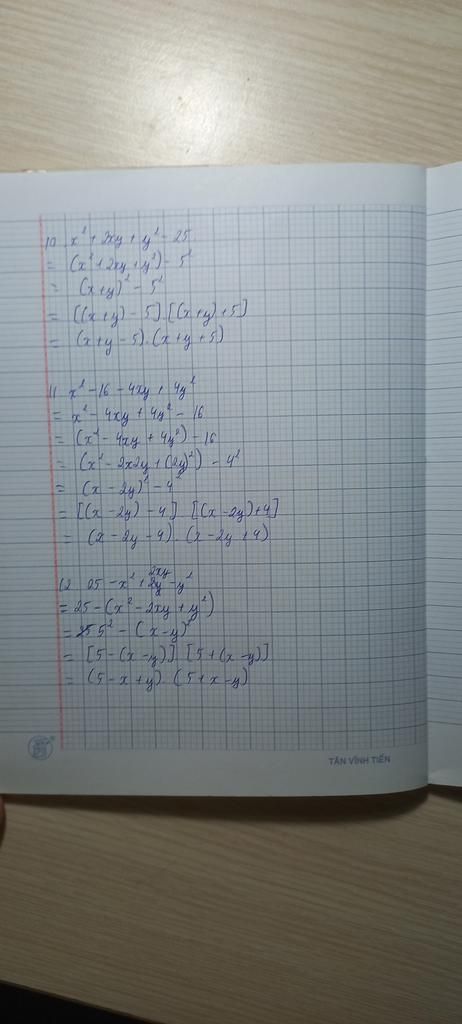 10 x² + 2xy + y² - 25
= (x² + 2xy + y²) - 5²
= (x+y)² - 5²
= [(x+y) - 5] . [(x+y) + 5]
= (x+y - 5) . (x+y + 5)
11 x² - 16 - 4xy + 4y²
= x² - 4xy + 4y² - 16
= (x² - 4xy + 4y²) - 16
= (x² - 2x2y + (2y)²) - 4²
= (x - 2y)² - 4²
= [(x - 2y) - 4] . [(x - 2y) + 4]
= (x - 2y - 4) . (x - 2y + 4)
12 25 - x² + 2xy - y²
= 25 - (x² - 2xy + y²)
= 5² - (x - y)²
= [5 - (x - y)] . [5 + (x - y)]
= (5 - x + y) . (5 + x - y)
TÂN VĨNH TIẾN